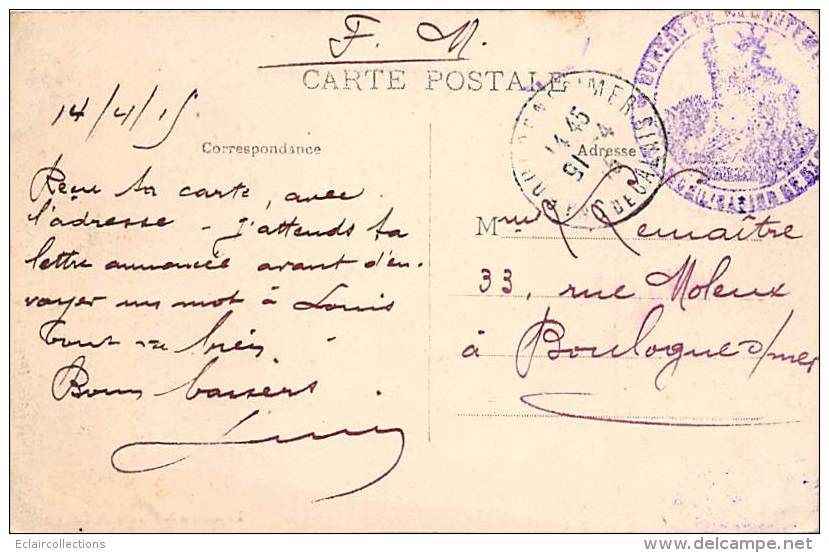 F. M.
CARTE POSTALE
14/4/15
Correspondance
Adresse
Reçu ta carte, avec
l'adresse - J'attends ta
lettre annoncée avant d'en-
voyer un mot à Louis
Tout va bien
Bons baisers
Mme Lemaître
33, rue Moleux
à Boulogne s/mer
14 45
BUREAU DE RECRUTEM
MOBILISATION DE
PAS DE CALAIS
Eclaircollections
www.delcampe.net